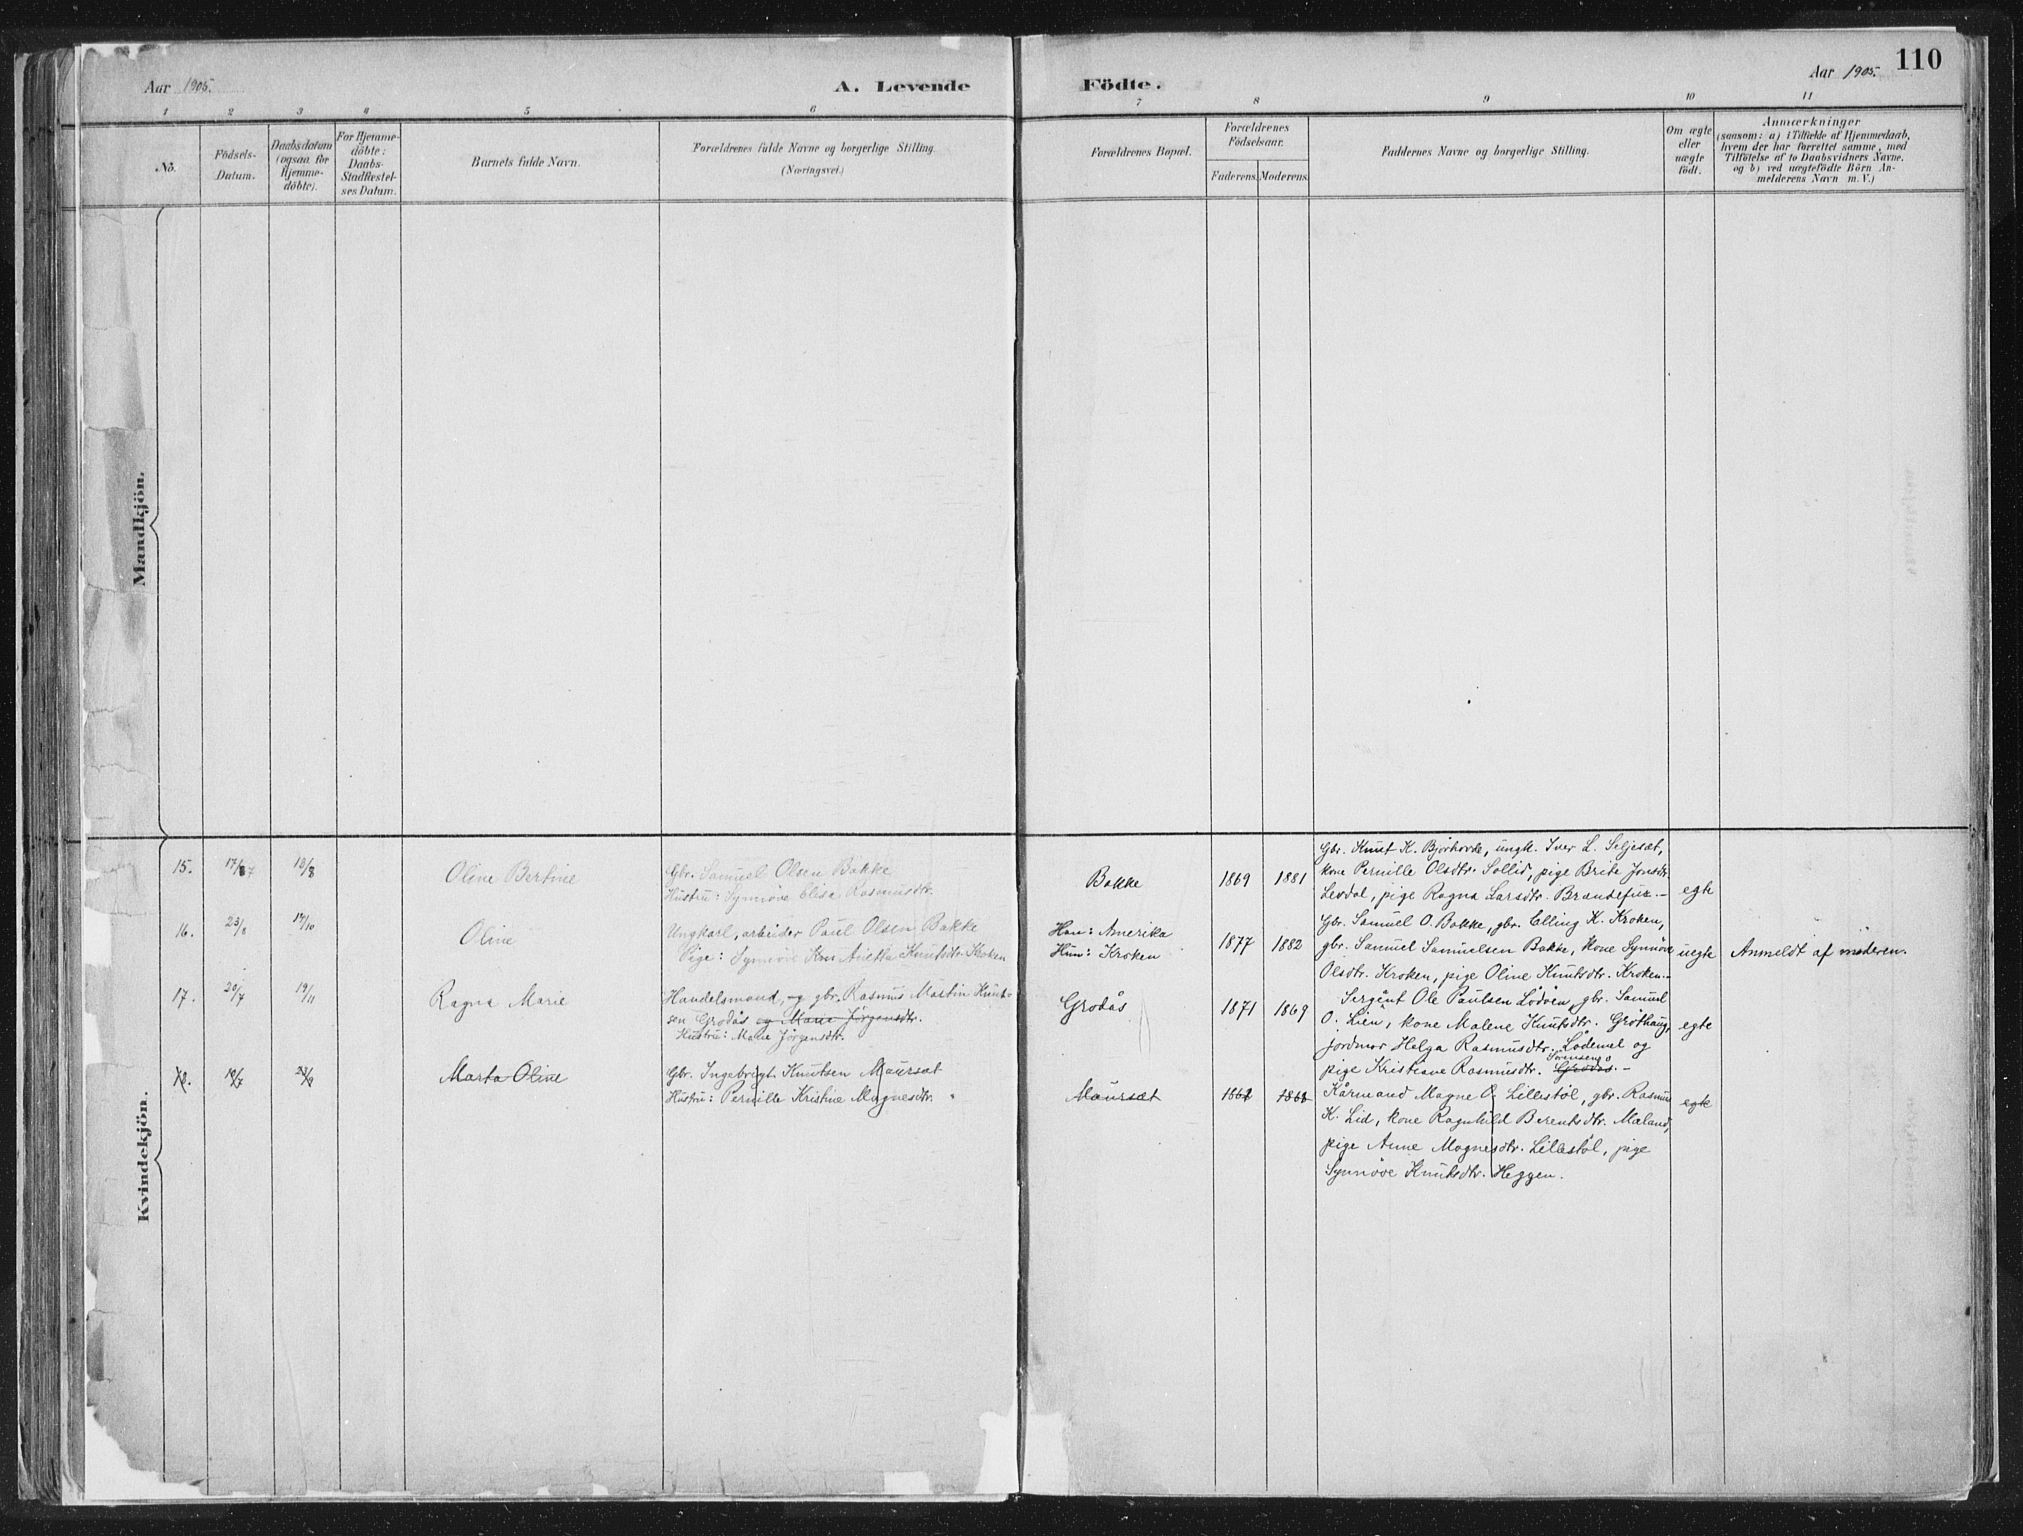 110
Aar 1905.
A. Levende
Födte.
Aar 1905.
1 2 3 4 5 6 7 8 9 10 11
No.
Födsels-
Datum.
Daabsdatum
(ogsaa for
Hjemme-
döbte).
For Hjemme-
döbte:
Daabs-
Stadfæstel-
ses Datum.
Barnets fulde Navn.
Forældrenes fulde Navne og borgerlige Stilling.
(Næringsvei.)
Forældrenes Bopæl.
Forældrenes
Födselsaar.
Faderens. Moderens.
Faddernes Navne og borgerlige Stilling.
Om ægte
eller
uægte
födt.
Anmærkninger
(saasom: a) i Tilfælde af Hjemmedaab,
hvem der har forrettet samme, med
Tilföielse af to Daabsvidners Navne.
og b) ved uægtefödte Börn An-
melderens Navn m. V.)
Mandkjön.
Kvindekjön.
15. 13/8
Oline Bertine
Gbr. Samuel Olsen Bakke
Hustru: Synnöve Elisa Rasmusdtr.
Bakke
1869 1881
Gbr. Knut K. Bjørhovde, ungk. Iver L. Seljeset,
kone Pernille Olsdtr. Sollid, pige Brite Jonsdtr.
Levdal, pige Ragna Larsdtr. –
egte
16. 23/8
Oline
Ungkarl, arbeider Paul Olsen Bakke
Pige: Synnöve Arietta Knutsdtr. Kroken
Han: Amerika
Hun: Kroken
1877 1882
Gbr. Samuel O. Bakke, gbr. Elling K. Kroken,
gbr. Samuel Samuelsen Bakke, kone Synnöve
Olsdtr. Kroken, pige Oline Knutsdtr. Kroken.–
uegte
Anmeldt af moderen.
17. 20/7 19/11
Ragna Marie
Handelsmand, og gbr. Rasmus Martin Knut-
sen Grodås og Marie Jørgensdtr.
Hustru: Marie Jørgensdtr.
Grodås
1871 1869
Sergent Ole Paulsen Lødöen, gbr. Samuel
O. Lien, kone Malene Knutsdtr. Grothaug,
jordmor Helga Rasmusdtr. Lødemel og
pige Kristiane Rasmusdtr. Grodås. –
egte
Marta Oline
Gbr. Ingebrigt Knutsen Maurset
Hustru: Pernille Kristine Magnesdtr.
Maurset
Kårmand Magne O. Lillestöl, gbr. Rasmus
K. Lid, kone Ragnhild Berentsdtr. Mæland,
pige Anne Magnesdtr. Lillestöl, pige
Synnöve Knutsdtr. Heggen.
egte